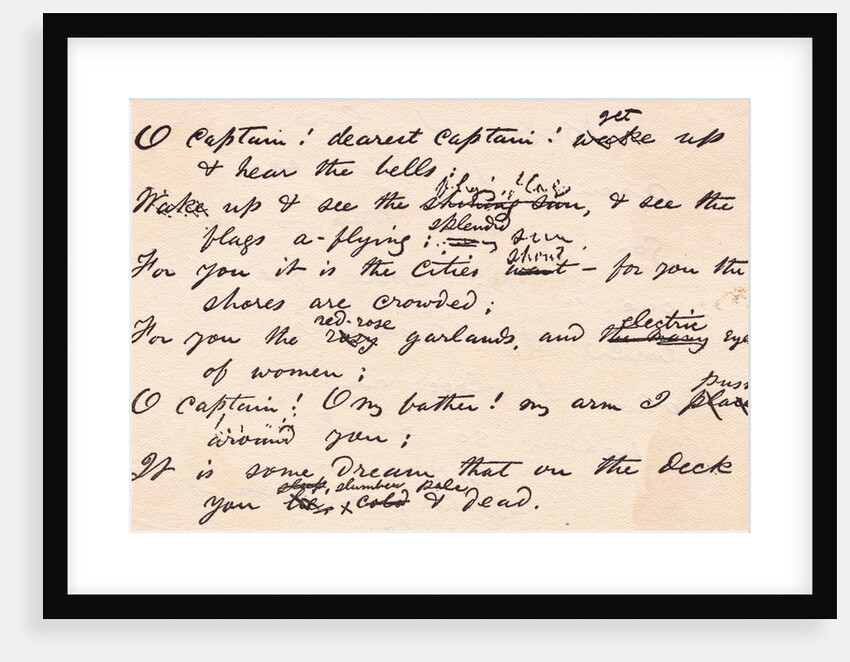 get
O Captain! dearest Captain! wake up
& hear the bells;
Wake up & see the shining sun, & see the
splendid
flags a-flying; sun
shout
For you it is the cities want – for you the
shores are crowded;
red-rose electric
For you the rosy garlands, and the many eye
of women;
O captain! O my father! my arm I place
around you;
It is some dream that on the deck
slumber pale
you & cold & dead.